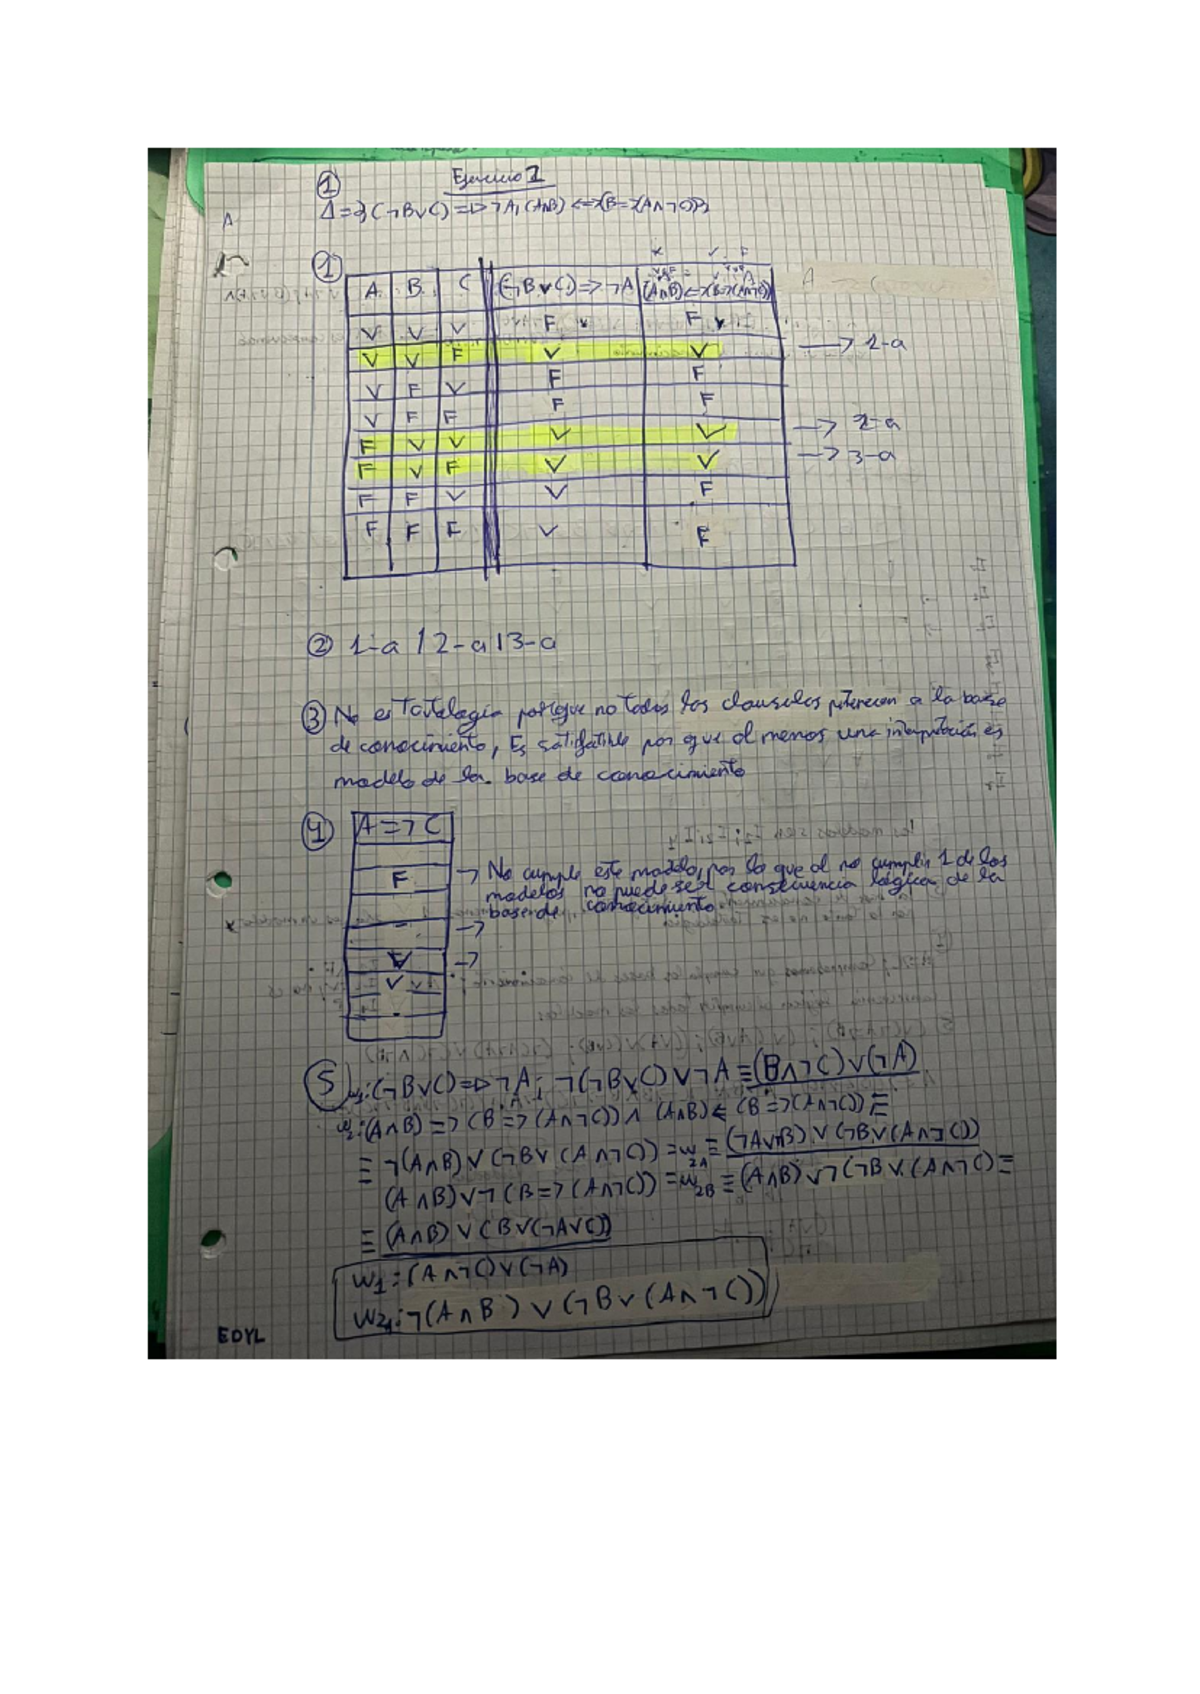 ① Ejercicio 1
Δ={(¬B∨C)=>¬A, (A∧B)<=>(B=>(A∧¬C))}
A
①
A B C (¬B∨C)=>¬A (A∧B)<=>(B=>(A∧¬C))
V V V F F
V V F V V → 1-a
V F V F F
V F F F F
F V V V V → 2-a
F V F V V → 3-a
F F V V F
F F F V F
② 1-a | 2-a | 3-a
③ No es Tautologia porque no todos las clausulas pertenecen a la base
de conocimiento, Es satisfatible por que al menos una interpretación es
modelo de la base de conocimiento
④ A=>¬C
F → No cumple este modelo, por lo que al no cumplir 1 de los
modelos no puede ser consecuencia lógica de la
base de conocimiento.
- →
V →
V
-
⑤ w1:(¬B∨C)=>¬A; ¬(¬B∨C)∨¬A ≡ (B∧¬C)∨(¬A)
w2:(A∧B)=>(B=>(A∧¬C))∧ (A∧B)<=(B=>(A∧¬C)) ≡
≡ ¬(A∧B)∨(¬B∨(A∧¬C))=w2A≡(¬A∨¬B)∨(¬B∨(A∧¬C))
(A∧B)∨¬(B=>(A∧¬C))=w2B≡(A∧B)∨¬(¬B∨(A∧¬C)≡
≡ (A∧B)∨(B∨(¬A∨C))
w1:(A∧¬C)∨(¬A)
w2A:¬(A∧B)∨(¬B∨(A∧¬C))
EDYL